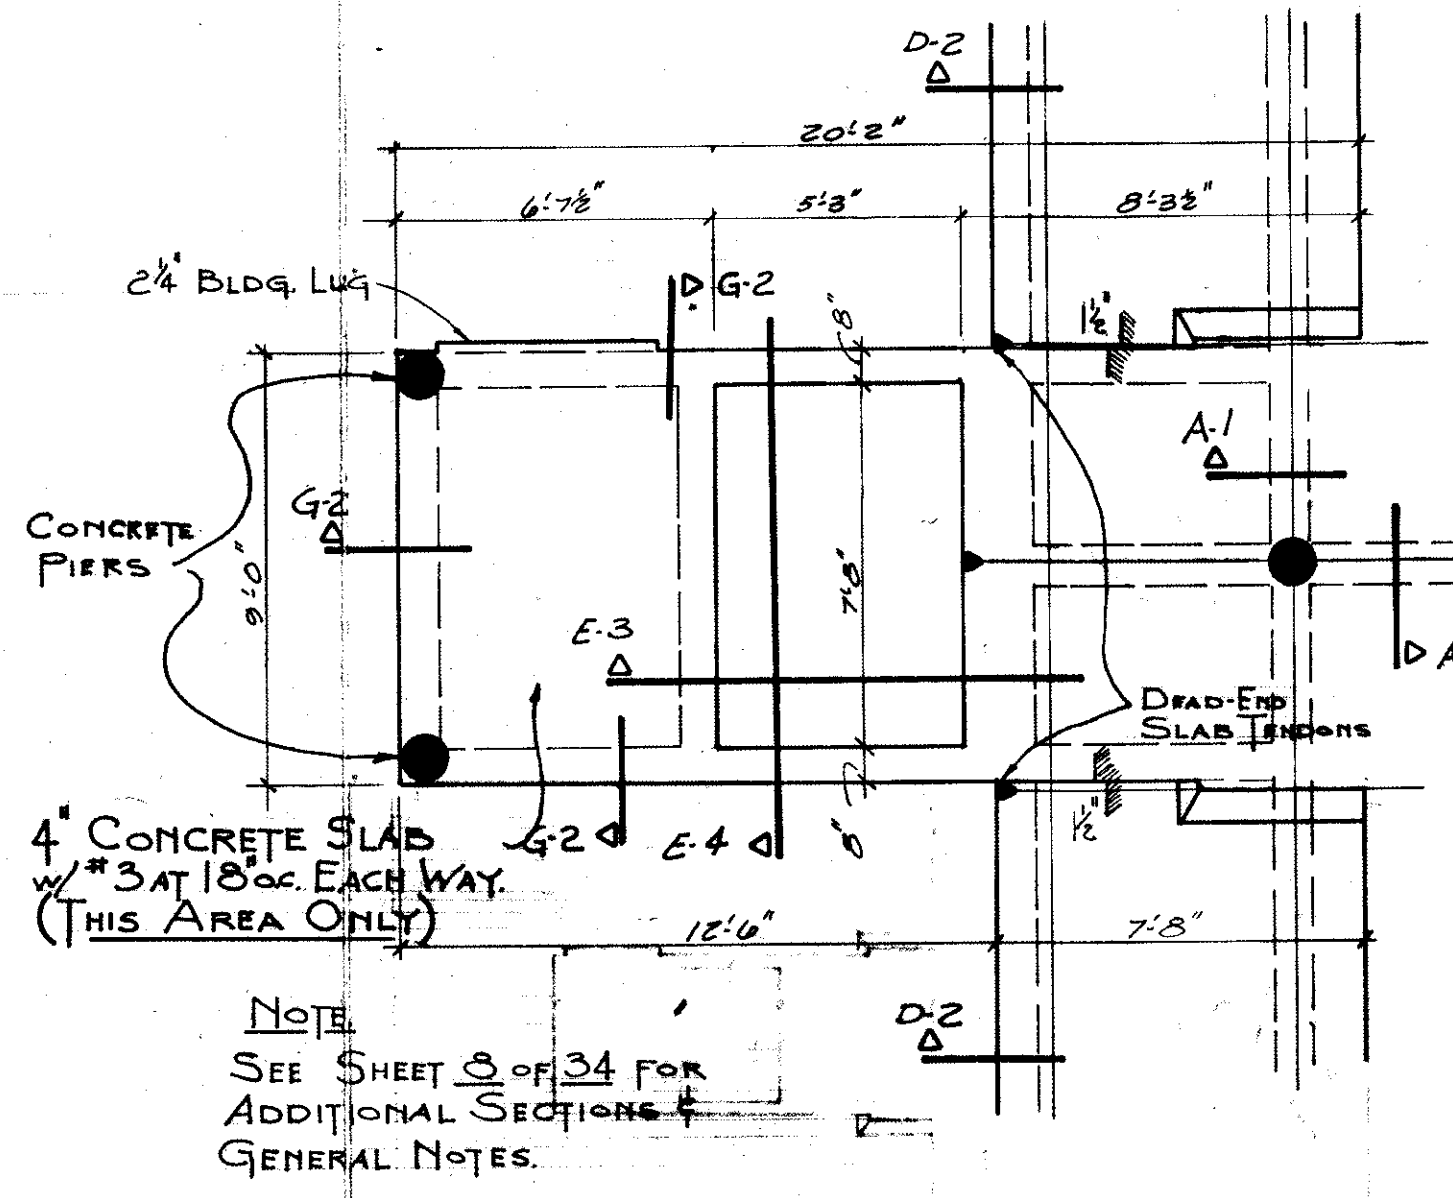 D-2
20'-2"
6'-7½"
5'-3"
8'-3½"
2¼" BLDG. LUG
G-2
8"
1½"
A-1
G-2
CONCRETE
PIERS
9'-0"
7'-8"
E-3
A
DEAD-END
SLAB TENDONS
4" CONCRETE SLAB
W/ #3 AT 18" O.C. EACH WAY.
(THIS AREA ONLY)
G-2
E-4
8"
1½"
12'-6"
7'-8"
D-2
NOTE
SEE SHEET 8 OF 34 FOR
ADDITIONAL SECTIONS &
GENERAL NOTES.